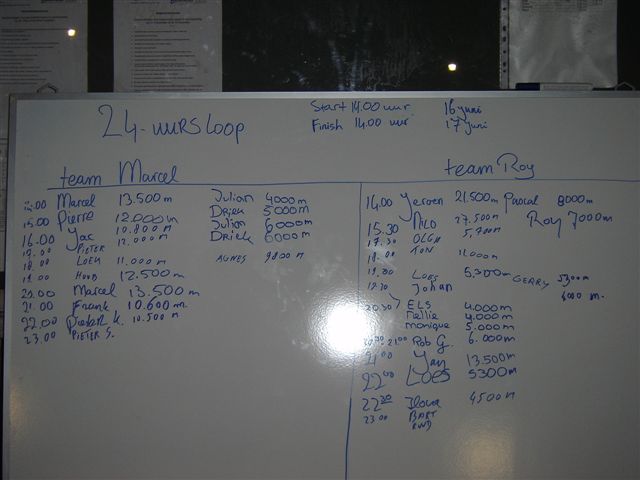 24-UURSLOOP
Start 14.00 uur 16 juni
Finish 14.00 uur 17 juni
team Marcel
14.00 Marcel 13.500 m Julian 4000 m
15.00 Pierre 12.000 m Driek 5000 m
16.00 Jac 10.800 m Julian 6000 m
PIETER 12.000 m Driek 6000 m
18.00 LOEK 11.000 m AGNES 9800 m
12.500 m
20.00 Marcel 13.500 m
21.00 Frank 10.600 m
22.00 K. 10.500 m
23.00 PIETER S.
team Roy
14.00 Jeroen 21.500 m Pascal 8000 m
15.30 27.500 m Roy 7000 m
17.30 OLGA
18.00 TON
LOES 5.300 m GEARY 5300 m
Johan 6000 m.
20.30 ELS 4.000 m
Nellie 4.000 m
monique 5.000 m
21.00 Rob G. 6.000 m
21.00 Jan 13.500 m
22.00 LOES 5300 m
22.30 4500 m
23.00 BART
RUUD